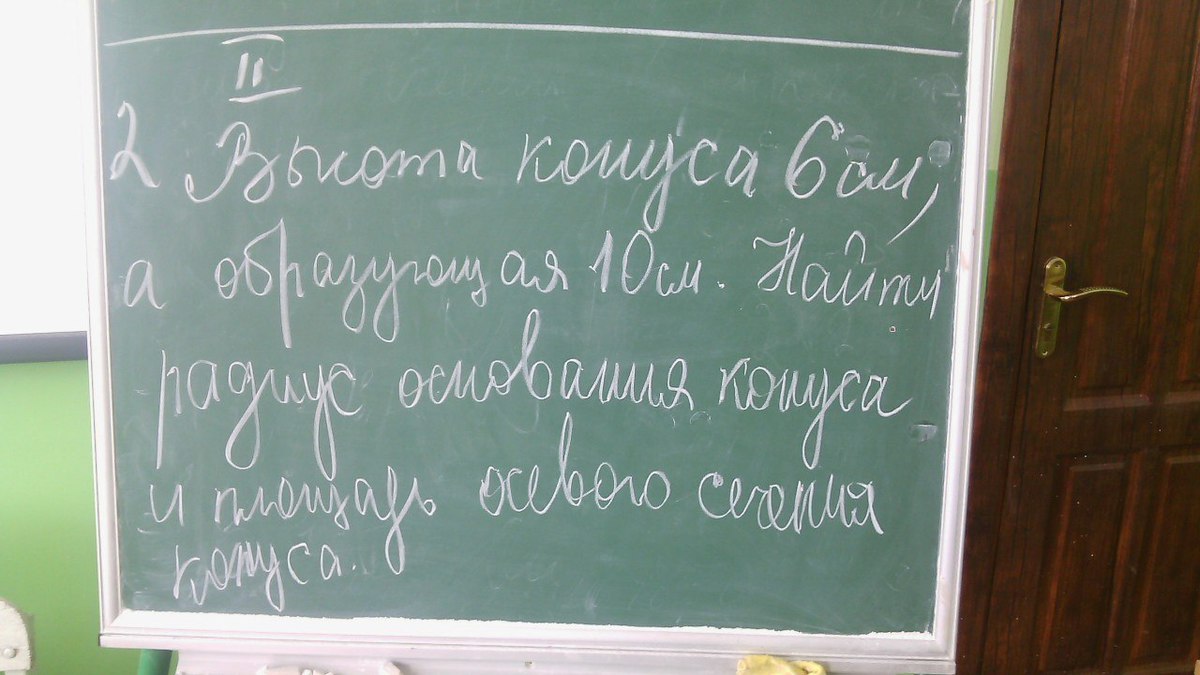 II
2 Высота конуса 6 см,
а образующая 10 см. Найти
радиус основания конуса
и площадь осевого сечения
конуса.